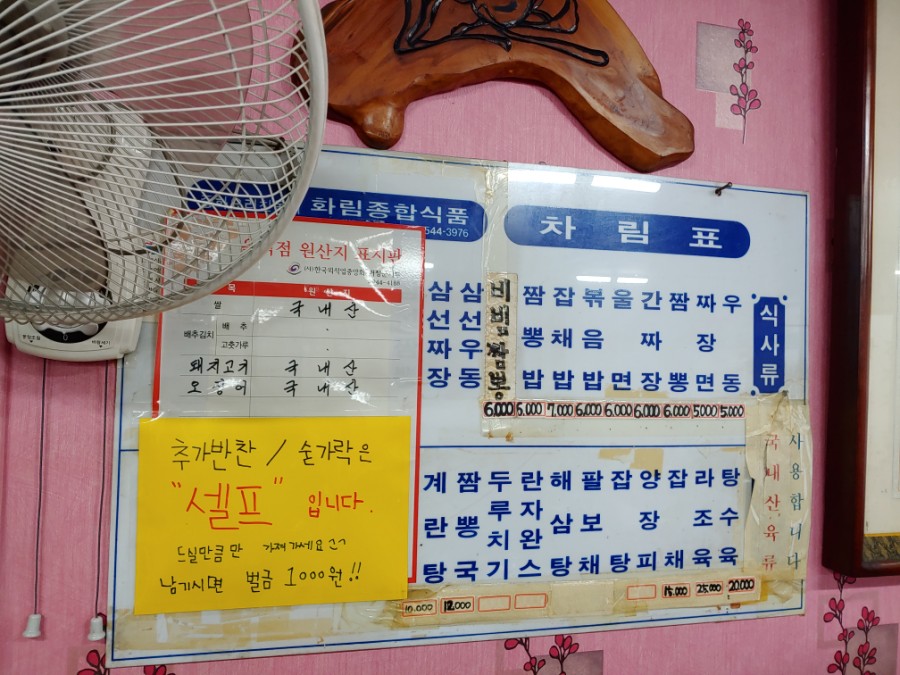 화림종합식품
544-3976
차림표
식사류
우동
짜장면
짬뽕
간짜장
울면
볶음밥
잡채밥
짬뽕밥
비빔짬뽕
삼선우동
삼선짜장
6,000 6,000 7,000 6,000 6,000 6,000 6,000 5000 5,000
탕수육
라조육
잡채
양장피
잡탕
팔보채
해삼탕
란자완스
두루치기
짬뽕국
계란탕
10,000 12,000 15,000 25,000 20,000
국내산육류
사용합니다
원산지 표시판
쌀 국내산
배추김치 배추
고춧가루
돼지고기 국내산
오징어 국내산
추가반찬 / 숟가락은
"셀프" 입니다.
드실만큼만 가져가세요
남기시면 벌금 1000원!!